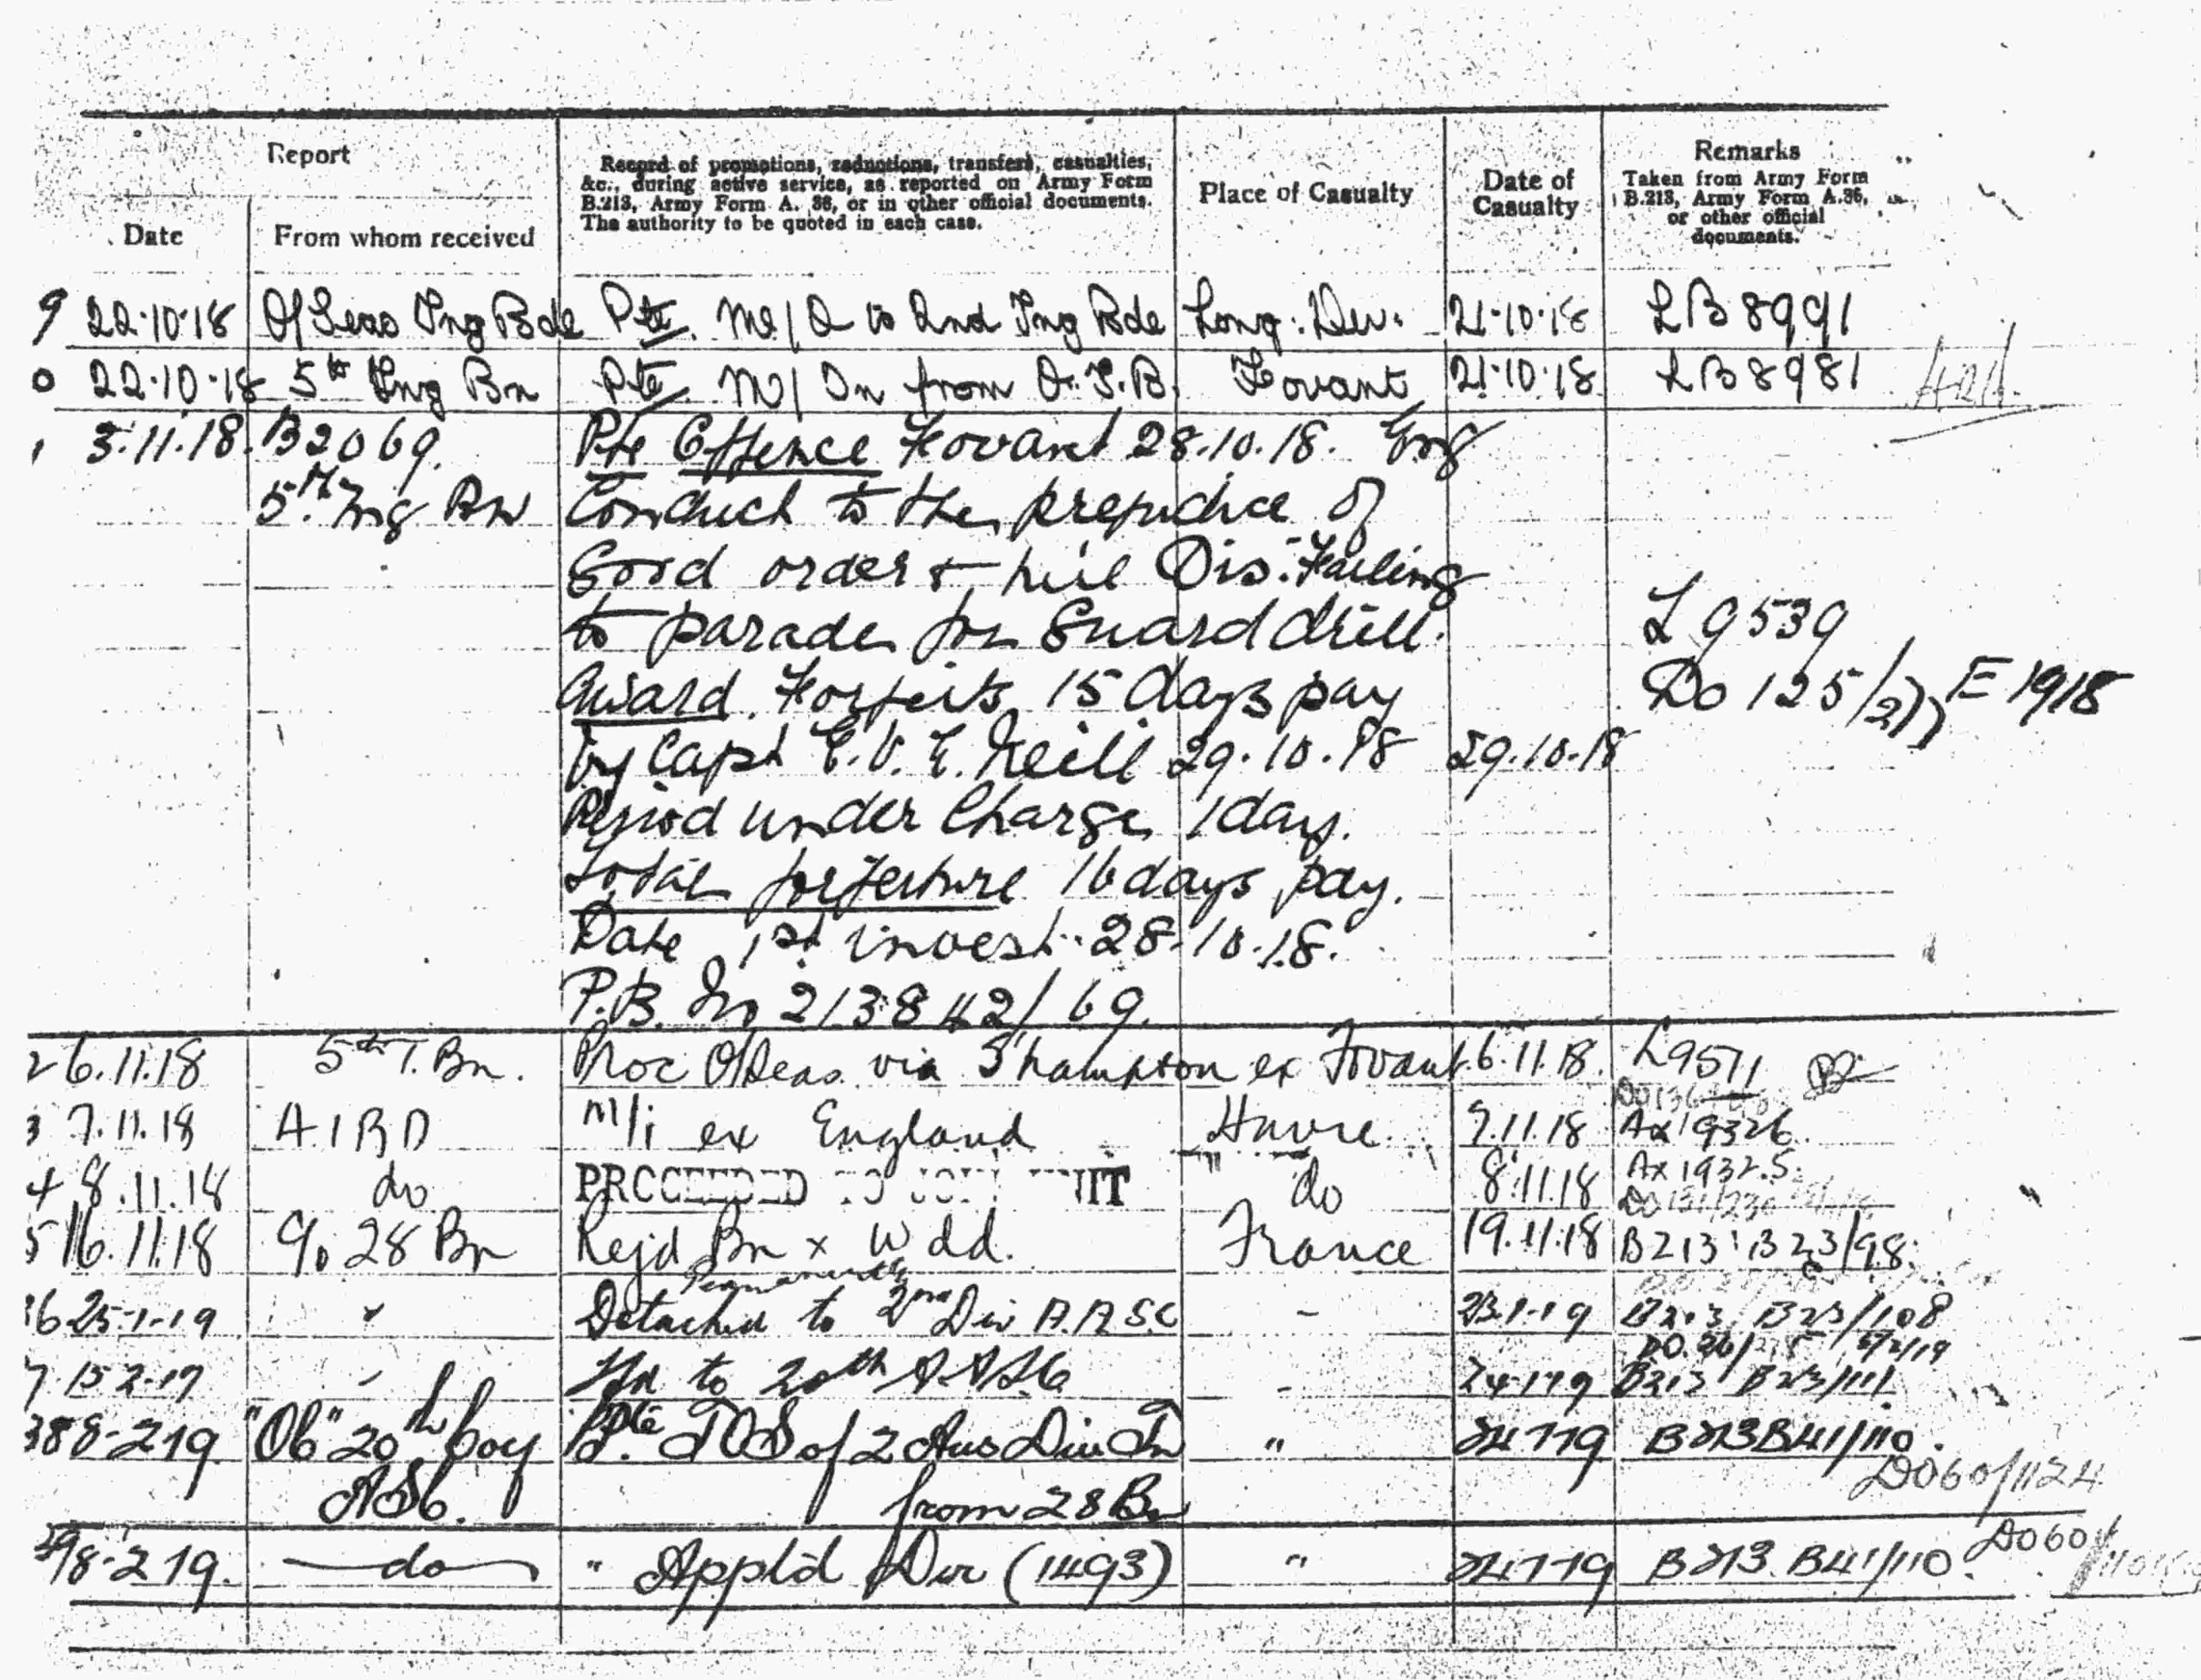 Report
Record of promotions, reductions, transfers, casualties,
&c., during active service, as reported on Army Form
B.213, Army Form A. 36, or in other official documents.
The authority to be quoted in each case.
Place of Casualty
Date of
Casualty
Remarks
Taken from Army Form
B.213, Army Form A.36,
or other official
documents.
Date
From whom received
9 22.10.18 O/Seas Tng Bde Pte. M/O to 2nd Tng Bde Long. Dev. 21.10.18 LB 8991
0 22.10.18 5th Tng Bn Pte. M/In from O.T.B. Fovant 21.10.18 LB 8981
1 3.11.18. B2069. Pte Offence Fovant 28.10.18. Eng
5th Tng Bn Conduct to the prejudice of
Good order & mil Dis. Failing
to parade for Guard drill.
L 9539
Award. Forfeits 15 days pay
Do 125/277 E 1918
by Capt E.V.E. Neill 29.10.18 29.10.18
Period under Charge 1 day.
Total forfeiture 16 days pay.
Date 1st invest. 28.10.18.
P.B. 213842/69.
2 6.11.18 5th T. Bn. Proc O/Seas via S'hampton ex Fovant 6.11.18. L9571
3 7.11.18 A I B D M/i ex England Havre 7.11.18 Ax 19326.
4 8.11.18 do PROCEEDED TO JOIN UNIT do 8.11.18 Ax 19325.
5 16.11.18 28 Bn Rejd Bn x Wdd. France 19.11.18 B213 B23/98.
Permanently
16 25-1-19 " Detached to 2nd Div A.A.S.C - 23-1-19 B213 B23/108
7 15-2-19 " to 20th A.A.S.C - 24-1-19 B213 B23/111
38 8-2-19 "OC" 20th Coy Pte TOS of 2 Aus Div Tn " 24-1-19 B213 B41/110.
DO60/1124
ASC. from 28 Bn
39 8-2-19. do " Appt'd Dvr (1493) " 24-1-19 B213. B41/110.
DO60/